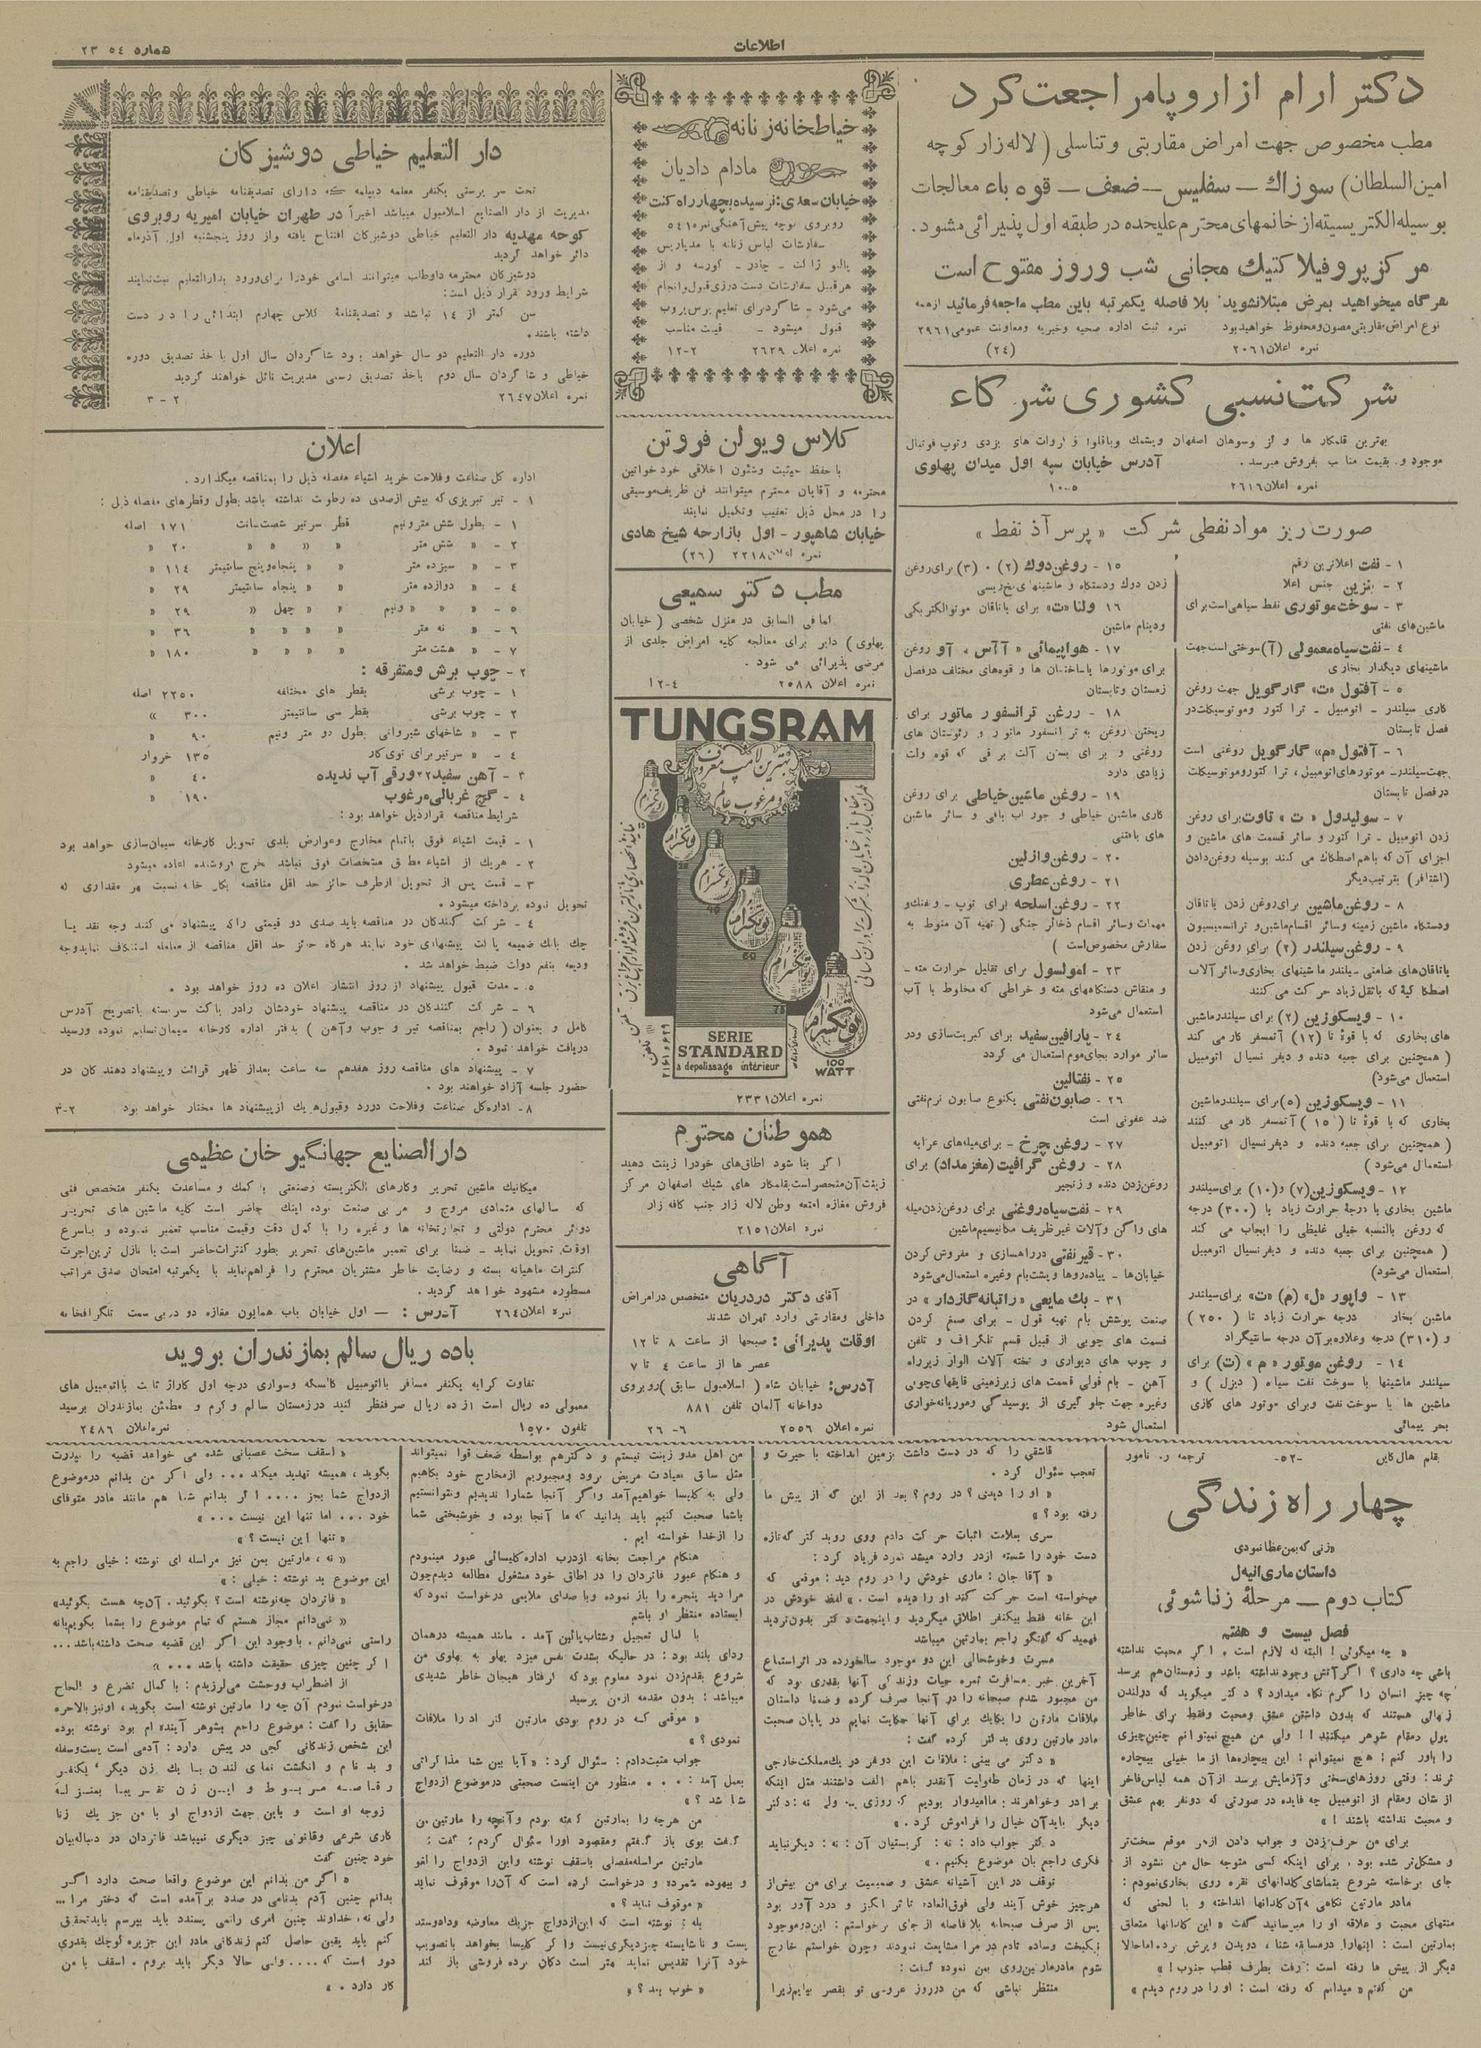 شماره ۲۳۵٤
اطلاعات
دکتر ارام از اروپا مراجعت کرد
مطب مخصوص جهت امراض مقاربتی و تناسلی ( لاله زار کوچه
امین السلطان) سوزاك – سفلیس – ضعف – قوه باء معالجات
بوسیله الکتریسیته از خانمهای محترم علیحده در طبقه اول پذیرائی میشود.
مرکز پروفیلاکتیك مجانی شب و روز مفتوح است
هر گاه میخواهید بمرض مبتلا نشوید بلا فاصله یکمرتبه باین مطب مراجعه فرمائید از همه
نوع امراض مقاربتی مصون و محفوظ خواهید بود نمره ثبت اداره صحیه و خیریه و معاونت عمومی ۲۹٦۱
نمره اعلان ۲۰٦۱ (۲٤)
شرکت نسبی کشوری شرکاء
موجود و بقیمت مناسب بفروش میرسد. آدرس خیابان سپه اول میدان پهلوی
نمره اعلان ۲٦۱٦ ۱۰-۵
صورت ریز مواد نفطی شرکت « پرس آذ نفط »
۱ - نفت اعلاترین رقم
۲ - بنزین جنس اعلا
۳ - سوخت موتوری نفط سیاهی است برای
ماشین‌های نفتی
٤ - نفت سیاه معمولی (آ) سوختی است جهت
ماشینهای دیگدار بخاری
۵ - آفتول «ت» گارگویل جهت روغن
کاری سیلندر - اتومبیل - تراکتور و موتوسیکلت در
فصل تابستان
٦ - آفتول «م» گارگویل روغنی است
جهت سیلندر- موتورهای اتومبیل، تراکتور و موتوسیکلت
در فصل تابستان
۷ - سولیدول « ت » تاوت برای روغن
زدن اتومبیل - تراکتور و سائر قسمت های ماشین و
اجزای آن که باهم اصطکاك می کنند بوسیله روغن‌دادن
(اشتافر) بترتیب دیگر
۸ - روغن ماشین برای روغن زدن یاتاقان
و دستگاه ماشین زمینه و سائر اقسام ماشین و ترانسمیسیون
۹ - روغن سیلندر (۲) برای روغن زدن
۱۰ - ویسکوزین (۲) برای سیلندر ماشین
های بخاری که با قوهٔ تا (۱۲) آتمسفر کار می کند
( همچنین برای جعبه دنده و دیفرنسیال اتومبیل
استعمال می‌شود)
۱۱ - ویسکوزین (۵) برای سیلندر ماشین
بخاری که با قوهٔ تا ( ۱۵ ) آتمسفر کار می کنند
( همچنین برای جعبه دنده و دیفرنسیال اتومبیل
استعمال می‌شود )
۱۲ - ویسکوزین (۷) و (۱۰) برای سیلندر
ماشین بخاری با درجهٔ حرارت زیاد با (۳۰۰) درجه
که روغن بالنسبه خیلی غلیظی را ایجاب می کند
( همچنین برای جعبه دنده و دیفرنسیال اتومبیل
استعمال می‌شود)
۱۳ - واپور «ل» (م) «ت» برای سیلندر
ماشین بخار درجه حرارت زیاد تا ( ۲۵۰ )
و (۳۱۰) درجه و علاوه بر آن درجه سانتیگراد
۱٤ - روغن موتور «م» (ت) برای
سیلندر ماشینها با سوخت نفت سیاه ( دیزل ) و
ماشین ها با سوخت نفت و برای موتور های گازی
بحر پیمائی
۱۵ - روغن دوك (۲) ۰ (۳) برای روغن
زدن دوك و دستگاه و ماشینهای نخ‌ریسی
۱٦ ولتا «ت» برای یاتاقان موتوالکتریکی
و دینام ماشین
۱۷ - هواپیمائی « آآس » آو روغن
برای موتورها با ساختمان ها و قوه‌های مختلف در فصل
زمستان و تابستان
۱۸ - روغن ترانسفورماتور برای
ریختن روغن به ترانسفورماتور و رئوستان های
روغنی و برای بستن آلت برقی که قوه ولت
زیادی دارد
۱۹ - روغن ماشین خیاطی برای روغن
کاری ماشین خیاطی و جوراب بافی و سائر ماشین
های بافتنی
۲۰ - روغن وازلین
۲۱ - روغن عطری
۲۲ - روغن اسلحه برای توپ - و تفنك و
مهمات و سائر اقسام ذخائر جنگی ( تهیه آن منوط به
سفارش مخصوص است )
۲۳ - امولسول برای تقلیل حرارت مته -
و منقاش دستگاههای مته و خراطی که مخلوط با آب
استعمال می‌شود
۲٤ - پارافین سفید برای کبریت‌سازی و در
سائر موارد بجای موم استعمال می گردد
۲۵ - نفتالین
۲٦ - صابون نفتی یکنوع صابون نرم نفتی
ضد عفونی است
۲۷ - روغن چرخ - برای میله‌های عرابه
۲۸ - روغن گرافیت (مغز مداد) برای
روغن‌زدن دنده و زنجیر
۲۹ - نفت سیاه روغنی برای روغن‌زدن میله
های واگن و آلات غیر ظریف مکانیسیم ماشین
۳۰ - قیر نفتی در راهسازی و مفروش کردن
خیابان‌ها - پیاده‌روها و پشت‌بام و غیره استعمال می‌شود
۳۱ - بك مایعی «راتبانه گازدار» در
صنعت پوشش بام تهیه قول - برای صمغ کردن
قسمت های چوبی از قبیل قسم تلگراف و تلفن
و چوب های دیواری و تخته آلات الوار زیر راه
آهن - بام فولی قسمت های زیرزمینی قایقهای چوبی
و غیره جهت جلو گیری از پوسیدگی و موریانه‌خواری
استعمال شود
خیاطخانه زنانه
مادام دادیان
خیابان سعدی: نرسیده بچهار راه کنت
سفارشات لباس زنانه با مد پاریس
پالتو ژاکت - چادر - کورسه و از
هر قبیل سفارشات دست دوزی قبول و انجام
می‌شود - شاگرد برای تعلیم برس بروب
قبول میشود - قیمت مناسب
نمره اعلان ۲٦۲۹ ۱۲-۲
کلاس ویولن فروتن
با حفظ حیثیت و شئون اخلاقی خود خواتین
محترمه و آقایان محترم میتوانند فن ظریف موسیقی
را در محل ذیل تعقیب و تکمیل نمایند
خیابان شاهپور - اول بازارچه شیخ هادی
نمره اعلان ۲۲۱۸ (۲٦)
مطب دکتر سمیعی
کمافی السابق در منزل شخصی ( خیابان
پهلوی ) دایر برای معالجه کلیه امراض جلدی از
مرضی پذیرائی می شود .
نمره اعلان ۲۵۸۸ ۱۲-٤
TUNGSRAM
بهترین لامپ معروف
و مرغوب عالم
تونگسرام
SERIE
STANDARD
a depolissage intérieur
100
WATT
نمره اعلان ۲۳۳۱
هموطنان محترم
اگر بنا شود اطاق‌های خود را زینت دهید
زینت آن منحصر است بقلمکار های شیك اصفهان مرکز
فروش مغازه امتعه وطن لاله زار جنب کافه زار
نمره اعلان ۲۱۵۱
آگاهی
آقای دکتر دردریان متخصص در امراض
داخلی و مقاربتی وارد تهران شدند
اوقات پذیرائی: صبحها از ساعت ۸ تا ۱۲
عصر ها از ساعت ٤ تا ۷
آدرس: خیابان شاه ( اسلامبول سابق ) روبروی
دواخانه آلمان تلفن ۸۸۱
نمره اعلان ۲۵۵٦ ۲٦-٦
دار التعلیم خیاطی دوشیزکان
تحت سر پرستی یکنفر معلمه دیپلمه که دارای تصدیقنامه خیاطی و تصدیقنامه
مدیریت از دار الصنایع اسلامبول میباشد اخیراً در طهران خیابان امیریه روبروی
کوچه مهدیه دار التعلیم خیاطی دوشیزکان افتتاح یافته و از روز پنجشنبه اول آذرماه
دائر خواهد گردید
دوشیزکان محترمه داوطلب میتوانند اسامی خود را برای ورود بدارالتعلیم ثبت نمایند
شرایط ورود بقرار ذیل است:
سن کمتر از ۱٤ نباشد و تصدیقنامهٔ کلاس چهارم ابتدائی را در دست
داشته باشند.
دوره دار التعلیم دو سال خواهد بود شاگردان سال اول باخذ تصدیق دوره
خیاطی و شاگردان سال دوم باخذ تصدیق رسمی مدیریت نائل خواهند گردید
نمره اعلان ۲٦٤۷ ۳-۲
اعلان
اداره کل صناعت و فلاحت خرید اشیاء مفصله ذیل را بمناقصه میگذارد.
۱ - تیر تبریزی که بیش از صدی ده رطوبت نداشته باشد بطول و قطرهای مفصله ذیل :
۱ - بطول شش متر و نیم قطر سر تیر شصت سانت ۱۷۱ اصله
۲ - « شش متر « « « ۲۰ «
۳ - « سیزده متر « « پنجاه و پنج سانتیمتر ۱۱٤ «
٤ - « دوازده متر « « پنجاه سانتیمتر ۲۹ «
۵ - « « « و نیم « « چهل « ۲۹ «
٦ - « نه متر « « « « ۳٦ «
۷ - « هشت متر « « « « ۱۸۰ «
۲ - چوب برش و متفرقه :
۱ - چوب برشی بقطر های مختلفه ۲۲۵۰ اصله
۲ - چوب برشی بقطر سی سانتیمتر ۳۰۰ «
۳ - « شاخهای شیروانی بطول دو متر و نیم ۹۰ «
٤ - « سرتیر برای توی کار ۱۳۵ خروار
۳ - آهن سفید ۲۲ ورقی آب ندیده ٤۰ «
٤ - گچ غربالی مرغوب ۱۹۰ «
شرایط مناقصه قرار ذیل خواهد بود :
۱ - قیمت اشیاء فوق باتمام مخارج و عوارض بلدی تحویل کارخانه سیمان‌سازی خواهد بود
۲ - هریك از اشیاء مطابق مشخصات فوق نباشد بخرج فروشنده اعاده میشود
۳ - قیمت پس از تحویل از طرف حائز حد اقل مناقصه بکارخانه نسبت بهر مقداری که
تحویل نموده پرداخته میشود.
٤ - شرکت کنندگان در مناقصه باید صدی دو قیمتی را که پیشنهاد می کنند وجه نقد یا
چك بانك ضمیمه پاکت پیشنهادی خود نمایند هرگاه حائز حد اقل مناقصه از معامله استنکاف نماید وجه
ودیعه بنفع دولت ضبط خواهد شد.
۵ - مدت قبول پیشنهاد از روز انتشار اعلان ده روز خواهد بود.
٦ - شرکت کنندگان در مناقصه پیشنهاد خودشان را در پاکت سربسته با تصریح آدرس
کامل و بعنوان ( راجع بمناقصه تیر و چوب و آهن ) بدفتر اداره کارخانه سیمان تسلیم نموده و رسید
دریافت خواهد نمود.
۷ - پیشنهاد های مناقصه روز هفدهم سه ساعت بعد از ظهر قرائت و پیشنهاد دهندکان در
حضور جلسه آزاد خواهند بود.
۸ - اداره کل صناعت و فلاحت در رد و قبول هریك از پیشنهاد ها مختار خواهد بود ۳-۲
دارالصنایع جهانگیر خان عظیمی
میکانیك ماشین تحریر و کارهای الکتریسته و صنعتی با کمك و مساعدت یکنفر متخصص فنی
که سالهای متمادی مروج و مربی صنعت بوده اینك حاضر است کلیه ماشین های تحریر
دوائر محترم دولتی و تجارتخانه ها و غیره را با کمال دقت و قیمت مناسب تعمیر نموده و باسرع
اوقات تحویل نماید - ضمنا برای تعمیر ماشین‌های تحریر بطور کنترات حاضر است با نازل ترین اجرت
کنترات ماهیانه بسته و رضایت خاطر مشتریان محترم را فراهم نماید با یکمرتبه امتحان صدق مراتب
مسطوره مشهود خواهد گردید.
نمره اعلان ۲٦٤ آدرس: - اول خیابان باب همایون مغازه دو دربی سمت تلگرافخانه
باده ریال سالم بمازندران بروید
تفاوت کرایه یکنفر مسافر با اتومبیل کالسکه و سواری درجه اول کاراژ ثابت با اتومبیل های
معمولی ده ریال است از ده ریال صرفنظر کنید در زمستان سالم و گرم و مطمئن بمازندران برسید
تلفون ۱۵۷۰ نمره اعلان ۲٤۸٦
بقلم هال کاین -۵۲- ترجمه ر. نامور
چهار راه زندگی
«زنی که بمن عطا نمودی»
داستان ماری انیه‌ل
کتاب دوم – مرحلهٔ زناشوئی
فصل بیست و هفتم
« چه میگوئی! البته که لازم است. اگر محبت نداشته
باشی چه داری؟ اگر آتش وجود نداشته باشد و زمستان هم برسد
چه چیز انسان را گرم نگاه میدارد؟ دکتر میگوید که در لندن
زنهائی هستند که بدون داشتن عشق و محبت و فقط برای خاطر
پول و مقام شوهر میکنند!! ولی من هیچ نمیتوانم چنین چیزی
را باور کنم! هیچ نمیتوانم! این بیچاره‌ها از ما خیلی بیچاره
ترند: وقتی روزهای سختی و آزمایش برسد از آن همه لباس فاخر
از شأن و مقام از اتومبیل چه فایده در صورتی که دو نفر بهم عشق
و محبت نداشته باشند!»
برای من حرف زدن و جواب دادن از هر موقع سخت‌تر
و مشکل‌تر شده بود. برای اینکه کسی متوجه حال من نشود از
جای برخاسته شروع بتماشای گلدانهای نقره روی بخاری نمودم:
مادر مارتین نگاهی به آن گلدانها انداخته و با لحنی که
منتهای محبت و علاقه او را میرسانید گفت « این گلدانها متعلق
بمارتین است: اینها را در مسابقه شنا، دویدن و پرش برد. اما حالا
دیگر از پیش ما رفته است: رفت بطرف قطب جنوب!»
من گفتم «میدانم که رفته است: او را در روم دیدم»
قاشقی را که در دست داشت بزمین انداخته با حیرت و
تعجب سئوال کرد.
« او را دیدی؟ در روم؟ بعد از این که از پیش ما
رفته بود؟»
سری بعلامت اثبات حرکت دادم و وی رو بدکتر که تازه
دست خود را شسته از در وارد میشد نمود فریاد کرد:
« آقا جان: ماری خودش را در روم دید: موقعی که
میخواسته است حرکت کند او را دیده است.» لفظ خودش در
این خانه فقط بیکنفر اطلاق میگردید و اینجهت دکتر بدون تردید
فهمید که گفتگو راجع بمارتین میباشد
مسرت و خوشحالی این دو موجود سالخورده در اثر استماع
آخرین خبر مسافرت ثمره حیات و زندگی آنها بقدری بود که
من مجبور شدم صبحانه را در آنجا صرف کرده و ضمنا داستان
ملاقات مارتن را یکایك برای آنها حکایت نمایم در پایان صحبت
مادر مارتین روی بدکتر کرده گفت:
« دکتر می بینی: ملاقات این دو نفر در یك مملکت خارجی
اینها که در زمان طفولیت آنقدر باهم الفت داشتند مثل اینکه
برادر و خواهرند: ما امیدوار بودیم که روزی ... ولی نه: دکتر
دیگر باید آن خیال را فراموش کرد.»
دکتر جواب داد: نه: کریستیان آن: نه: دیگر نباید
فکری راجع بآن موضوع بکنیم.»
توقف در این آشیانه عشق و صمیمیت برای من بیش از
هر چیز خوش آیند ولی فوق‌العاده تأثر انگیز و درد آور بود
پس از صرف صبحانه بلافاصله از جای برخواستم: این دو موجود
نیکبخت و ساده تا دم در مرا مشایعت نمودند و چون خواستم خارج
شوم مادر مارتین روی بمن نموده گفت:
منتظر نباشی که من در روز عروسی تو بقصر بیایم زیرا
من اهل مد و زینت نیستم و دکتر هم بواسطه ضعف قوا نمیتواند
مثل سابق بعیادت مریض برود و مجبوریم از مخارج خود بکاهیم
ولی به کلیسا خواهیم آمد و اگر آنجا شما را ندیدیم و نتوانستیم
باشما صحبت کنیم باید بدانید که ما آنجا بوده و خوشبختی شما
را از خدا خواسته ایم.
هنگام مراجعت بخانه از درب اداره کلیسائی عبور مینمودم
و هنگام عبور فاتردان را در اطاق خود مشغول مطالعه دیدم چون
مرا دید پنجره را باز نموده و با صدای ملایمی درخواست نمود که
ایستاده منتظر او باشم
با کمال تعجیل و شتاب پائین آمد. مانند همیشه در همان
ردای بلند بود: در حالیکه بشدت نفس میزد پهلو به پهلوی من
شروع بقدم‌زدن نمود معلوم بود که گرفتار هیجان خاطر شدیدی
میباشد: بدون مقدمه از من پرسید
« موقعی که در روم بودی مارتین کنراد را ملاقات
نمودی؟»
جواب مثبت دادم: سئوال کرد: « آیا بین شما مذاکراتی
بعمل آمد: ... منظور من اینست صحبتی در موضوع ازدواج
شما شد؟»
من هرچه را بمارتین گفته بودم و آنچه را مارتین من
گفت بوی باز گفتم و مقصود او را سئوال کردم: گفت:
مارتین مراسله مفصلی باسقف نوشته و این ازدواج را لغو
و بیهوده شمرده و درخواست کرده است که آن را موقوف نماید
« موقوف نماید؟»
بله: نوشته است که این ازدواج جز یك معاوضه و داد و ستد
پست و ناشایسته چیز دیگری نیست و اگر کلیسا بخواهد با تصویب
خود آنرا تقدیس نماید بهتر است دکان برده فروشی باز کند
« خوب بعد؟»
« اسقف سخت عصبانی شده می خواهد قضیه را بپدرت
بگوید، همیشه تهدید میکند ... ولی اگر من بدانم در موضوع
ازدواج شما بجز .... اگر بدانم شما هم مانند مادر متوفای
خود ... اما تنها این نیست ...»
« تنها این نیست؟»
« نه، مارتین بمن نیز مراسله ای نوشته: خیلی راجع به
این موضوع بد نوشته: خیلی:»
« فاتردان چه نوشته است؟ بگوئید. آن چه هست بگوئید»
« نمی‌دانم مجاز هستم که تمام موضوع را بشما بگویم یا نه
راستی نمی‌دانم. با وجود این اگر این قضیه صحت داشته باشد...
اگر چنین چیزی حقیقت داشته باشد ...»
از اضطراب و وحشت می‌لرزیدم: با کمال تضرع و الحاح
درخواست نمودم آن چه را مارتین نوشته است بگوید، او نیز بالاخره
حقایق را گفت: موضوع راجع بشوهر آینده ام بود نوشته بوده
این شخص زندگانی کجی در پیش دارد: آدمی است پست و سفله
و بد نام و انگشت نمای لندن با یك زن دیگر، یکنفر
رقاصه مربوط و این زن تقریبا بمنزله
زوجه او است و باین جهت ازدواج او با من جز یك زنا
کاری شرعی و قانونی چیز دیگری نمیباشد فاتردان در دنباله بیان
خود چنین گفت
« اگر من بدانم این موضوع واقعا صحت دارد اگر
بدانم چنین آدم بدنامی در صدد برآمده است که دختر مرا ...
ولی نه، خداوند چنین امری را نمی پسندد باید بپرسم باید تحقیق
کنم باید یقین حاصل کنم زندگانی ما در این جزیره کوچك بقدری
دور است که .... ولی حالا دیگر باید بروم. اسقف با من
کار دارد.»